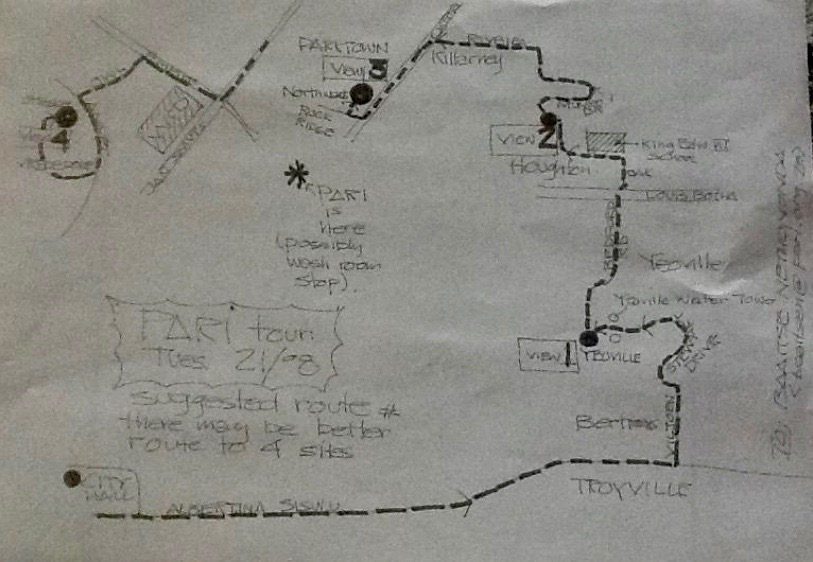 PARKTOWN
VIEW 3
ROCK
RIDGE
RIVIERA
Killarney
VIEW 2
Houghton
King Edw VII
School
LOUIS BOTHA
4
JAN SMUTS
PARI
is
here
(possibly
wash room
stop).
Yeoville
Yeoville Water Tower
VIEW 1
YEOVILLE
STEWARTS
DRIVE
PARI tour
Tues 21/08
suggested route
there may be better
route to 4 sites
Bertrams
VICTORIA
CITY
HALL
ALBERTINA SISULU
TROYVILLE